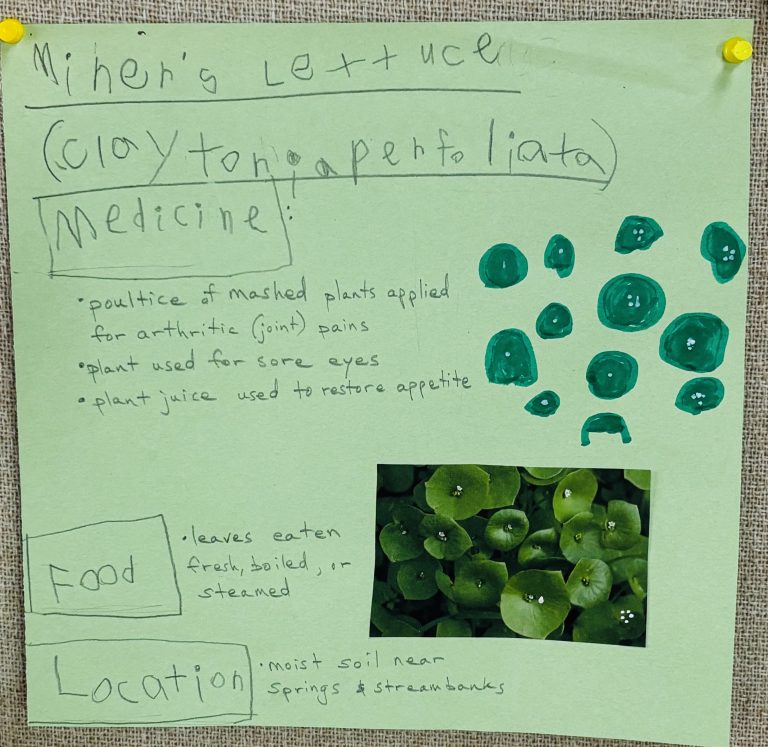 Miner's Lettuce
(claytonia perfoliata)
Medicine:
• poultice of mashed plants applied
for arthritic (joint) pains
• plant used for sore eyes
• plant juice used to restore appetite
Food
• leaves eaten
fresh, boiled, or
steamed
Location
• moist soil near
springs & streambanks